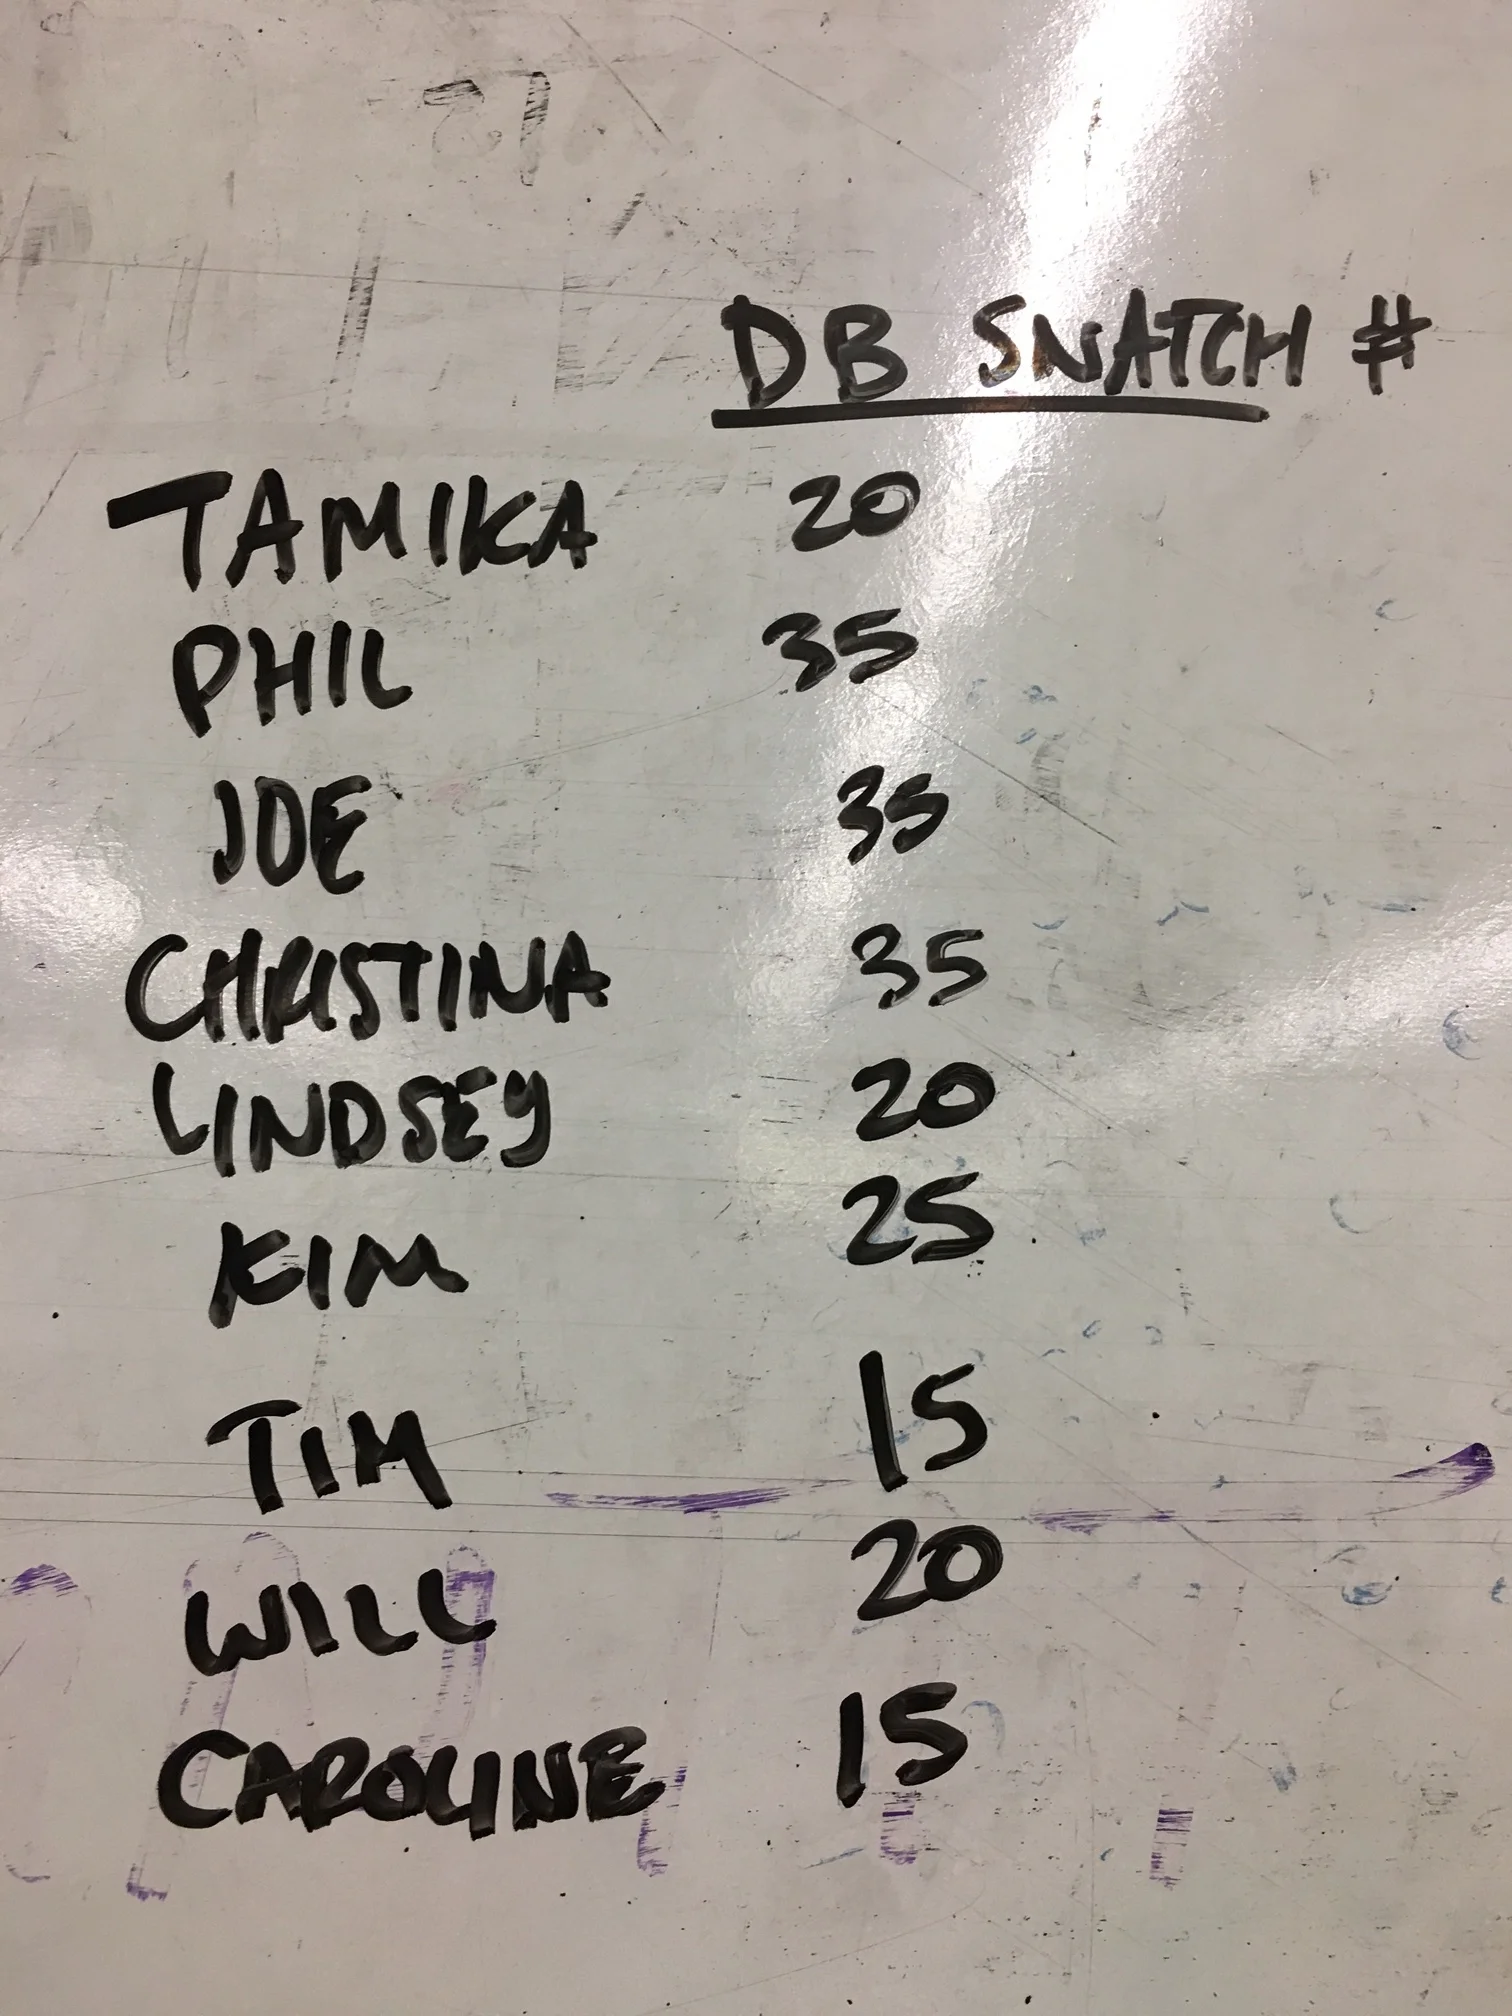 DB SNATCH #
TAMIKA 20
PHIL 35
JOE 35
CHRISTINA 35
LINDSEY 20
KIM 25
TIM 15
WILL 20
CAROLINE 15